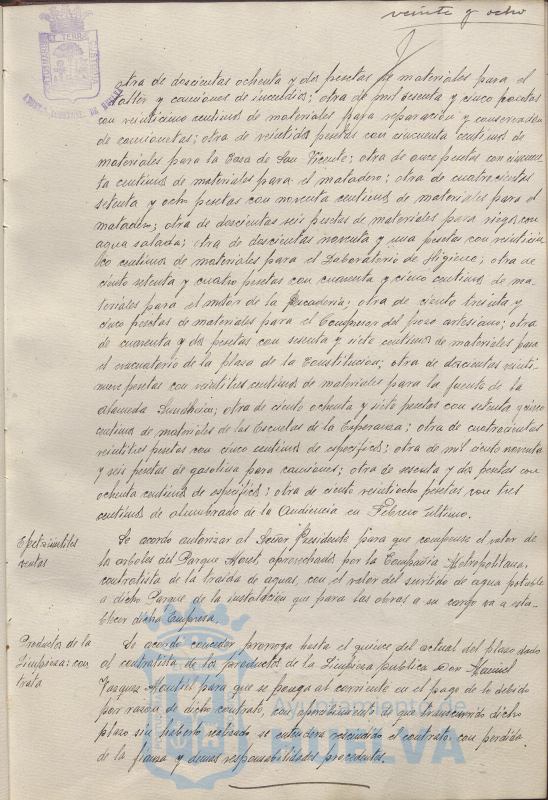 veinte y ocho
otra de doscientas ochenta y dos pesetas de materiales para el
taller y camiones de incendios; otra de mil sesenta y cinco pesetas
con veinticinco centimos de materiales para reparación y conservación
de camionetas; otra de veintidos pesetas con cincuenta centimos de
materiales para la Casa de San Vicente; otra de once pesetas con cincuen-
ta centimos de materiales para el matadero; otra de cuatrocientas
setenta y ocho pesetas con noventa centimos de materiales para el
matadero; otra de doscientas seis pesetas de materiales para riegos con
agua salada; otra de doscientas noventa y una pesetas con veinticin
co centimos de materiales para el Laboratorio de Higiene; otra de
ciento setenta y cuatro pesetas con cuarenta y cinco centimos de ma-
teriales para el motor de la Pescaderia; otra de ciento treinta y
cinco pesetas de materiales para el Compresor del pozo artesiano; otra
de cuarenta y dos pesetas con sesenta y siete centimos de materiales para
el evacuatorio de la plaza de la Constitucion; otra de doscientas veinti-
nueve pesetas con veintitres centimos de materiales para la fuente de la
Alameda Sundheim; otra de ciento ochenta y siete pesetas con setenta y cinco
centimos de materiales de las Escuelas de la Esperanza; otra de cuatrocientas
veintitres pesetas con cinco centimos de especificos; otra de mil ciento noventa
y seis pesetas de gasolina para camiones; otra de sesenta y dos pesetas con
ochenta centimos de especificos; otra de ciento veintiocho pesetas con tres
centimos de alumbrado de la Audiencia en Febrero último.
Efectos inútiles
ventas
Se acordo autorizar al Señor Presidente para que compense el valor de
los arboles del Parque Moret, aprovechados por la Compañia Metropolitana,
contratista de la traida de aguas, con el valor del surtido de agua potable
a dicho Parque, de la instalación que para las obras a su cargo va a esta-
blecer dicha Empresa.
Productos de la
Limpieza: con
trata
Se acordo conceder prorroga hasta el quince del actual del plazo dado
al contratista de los productos de la Limpieza publica Don Manuel
Vazquez para que se ponga al corriente en el pago de lo debido
por razon de dicho contrato, con apercibimiento de que transcurrido dicho
plazo sin haberlo realizado se entendera rescindido el contrato, con perdida
de la fianza y demas responsabilidades procedentes.
Ayuntamiento de
HUELVA